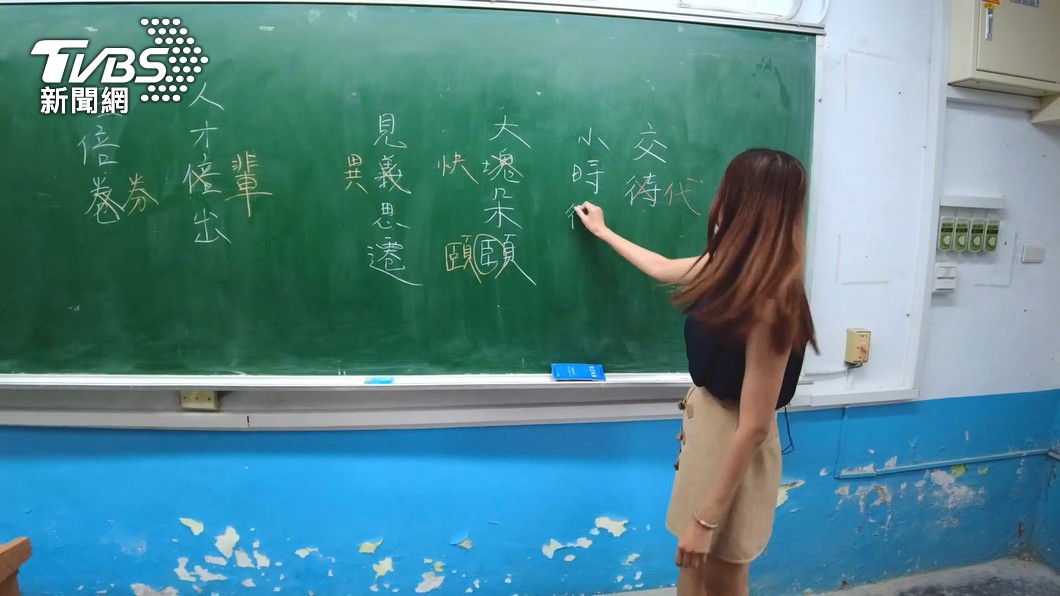 TVBS
新聞網
交待
代
小時
大塊朵頤
快
頤
見義思遷
異
人才倍出
輩
倍卷
券